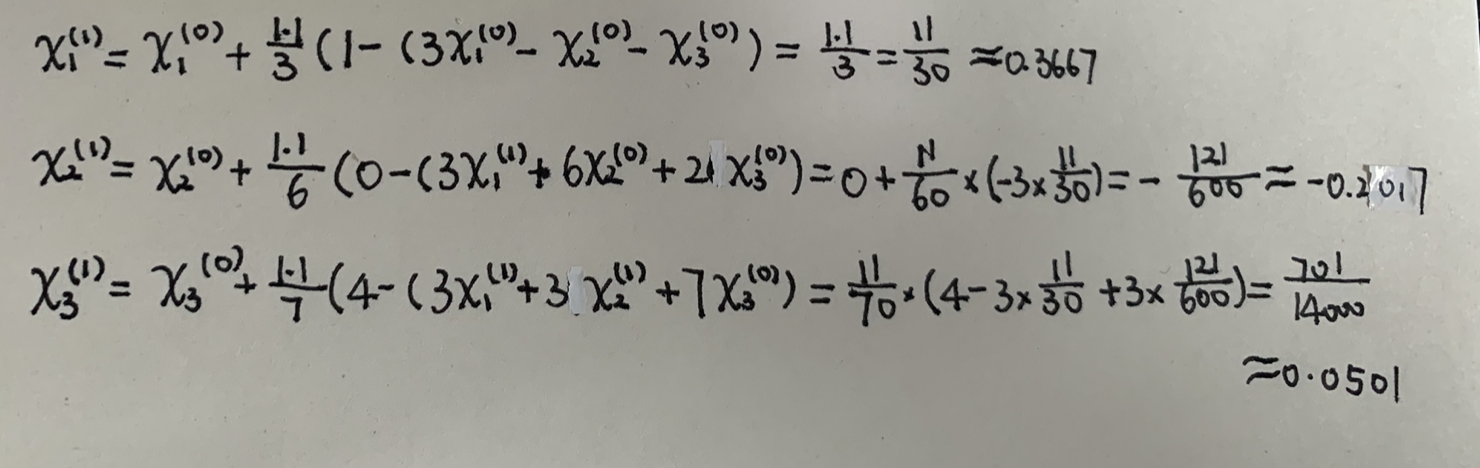 x₁⁽¹⁾ = x₁⁽⁰⁾ + 1.1/3 (1 - (3x₁⁽⁰⁾ - x₂⁽⁰⁾ - x₃⁽⁰⁾) = 1.1/3 = 11/30 ≈ 0.3667
x₂⁽¹⁾ = x₂⁽⁰⁾ + 1.1/6 (0 - (3x₁⁽¹⁾ + 6x₂⁽⁰⁾ + 2 x₃⁽⁰⁾) = 0 + 11/60 × (-3 × 11/30) = - 121/600 ≈ -0.2017
x₃⁽¹⁾ = x₃⁽⁰⁾ + 1.1/7 (4 - (3x₁⁽¹⁾ + 3 x₂⁽¹⁾ + 7x₃⁽⁰⁾) = 11/70 × (4 - 3 × 11/30 + 3 × 121/600) = 701/14000
≈ 0.0501